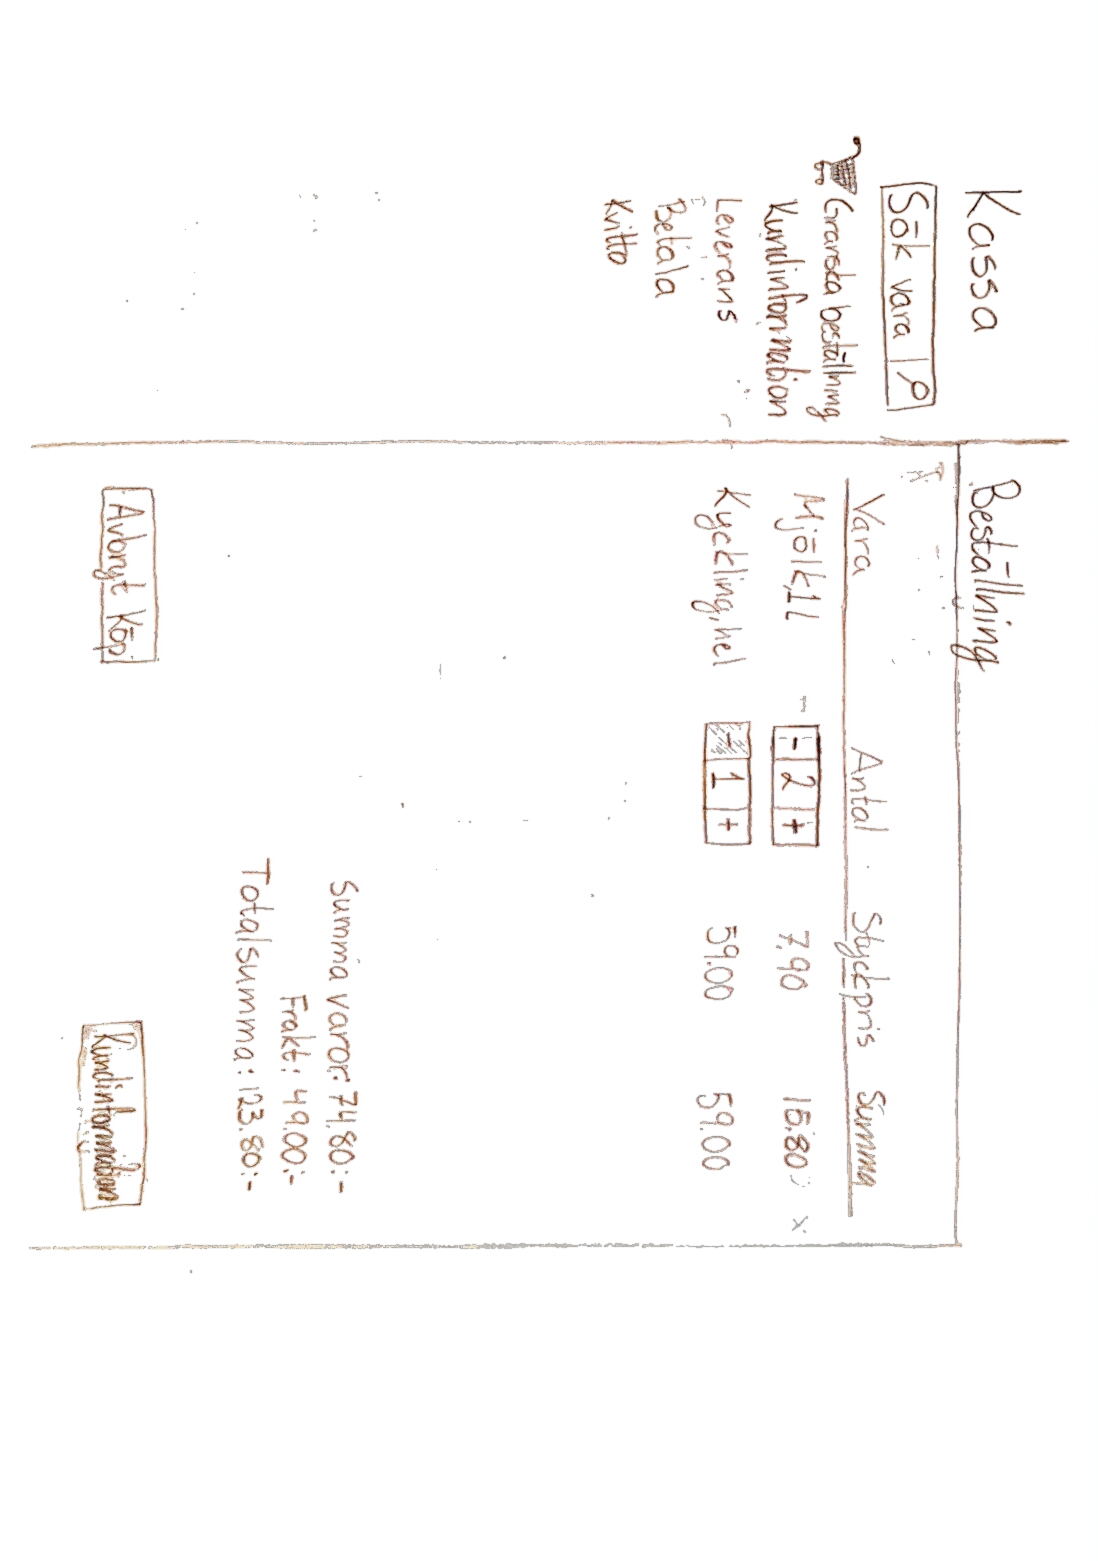 Kassa
Sök vara
Granska beställning
Kundinformation
Leverans
Betala
Kvitto
Beställning
Vara Antal Styckpris Summa
Mjölk,1l - 2 + 7,90 15.80 x
Kyckling,hel - 1 + 59.00 59.00
Summa varor: 74,80:-
Frakt: 49.00:-
Totalsumma: 123.80:-
Avbryt Köp
Kundinformation